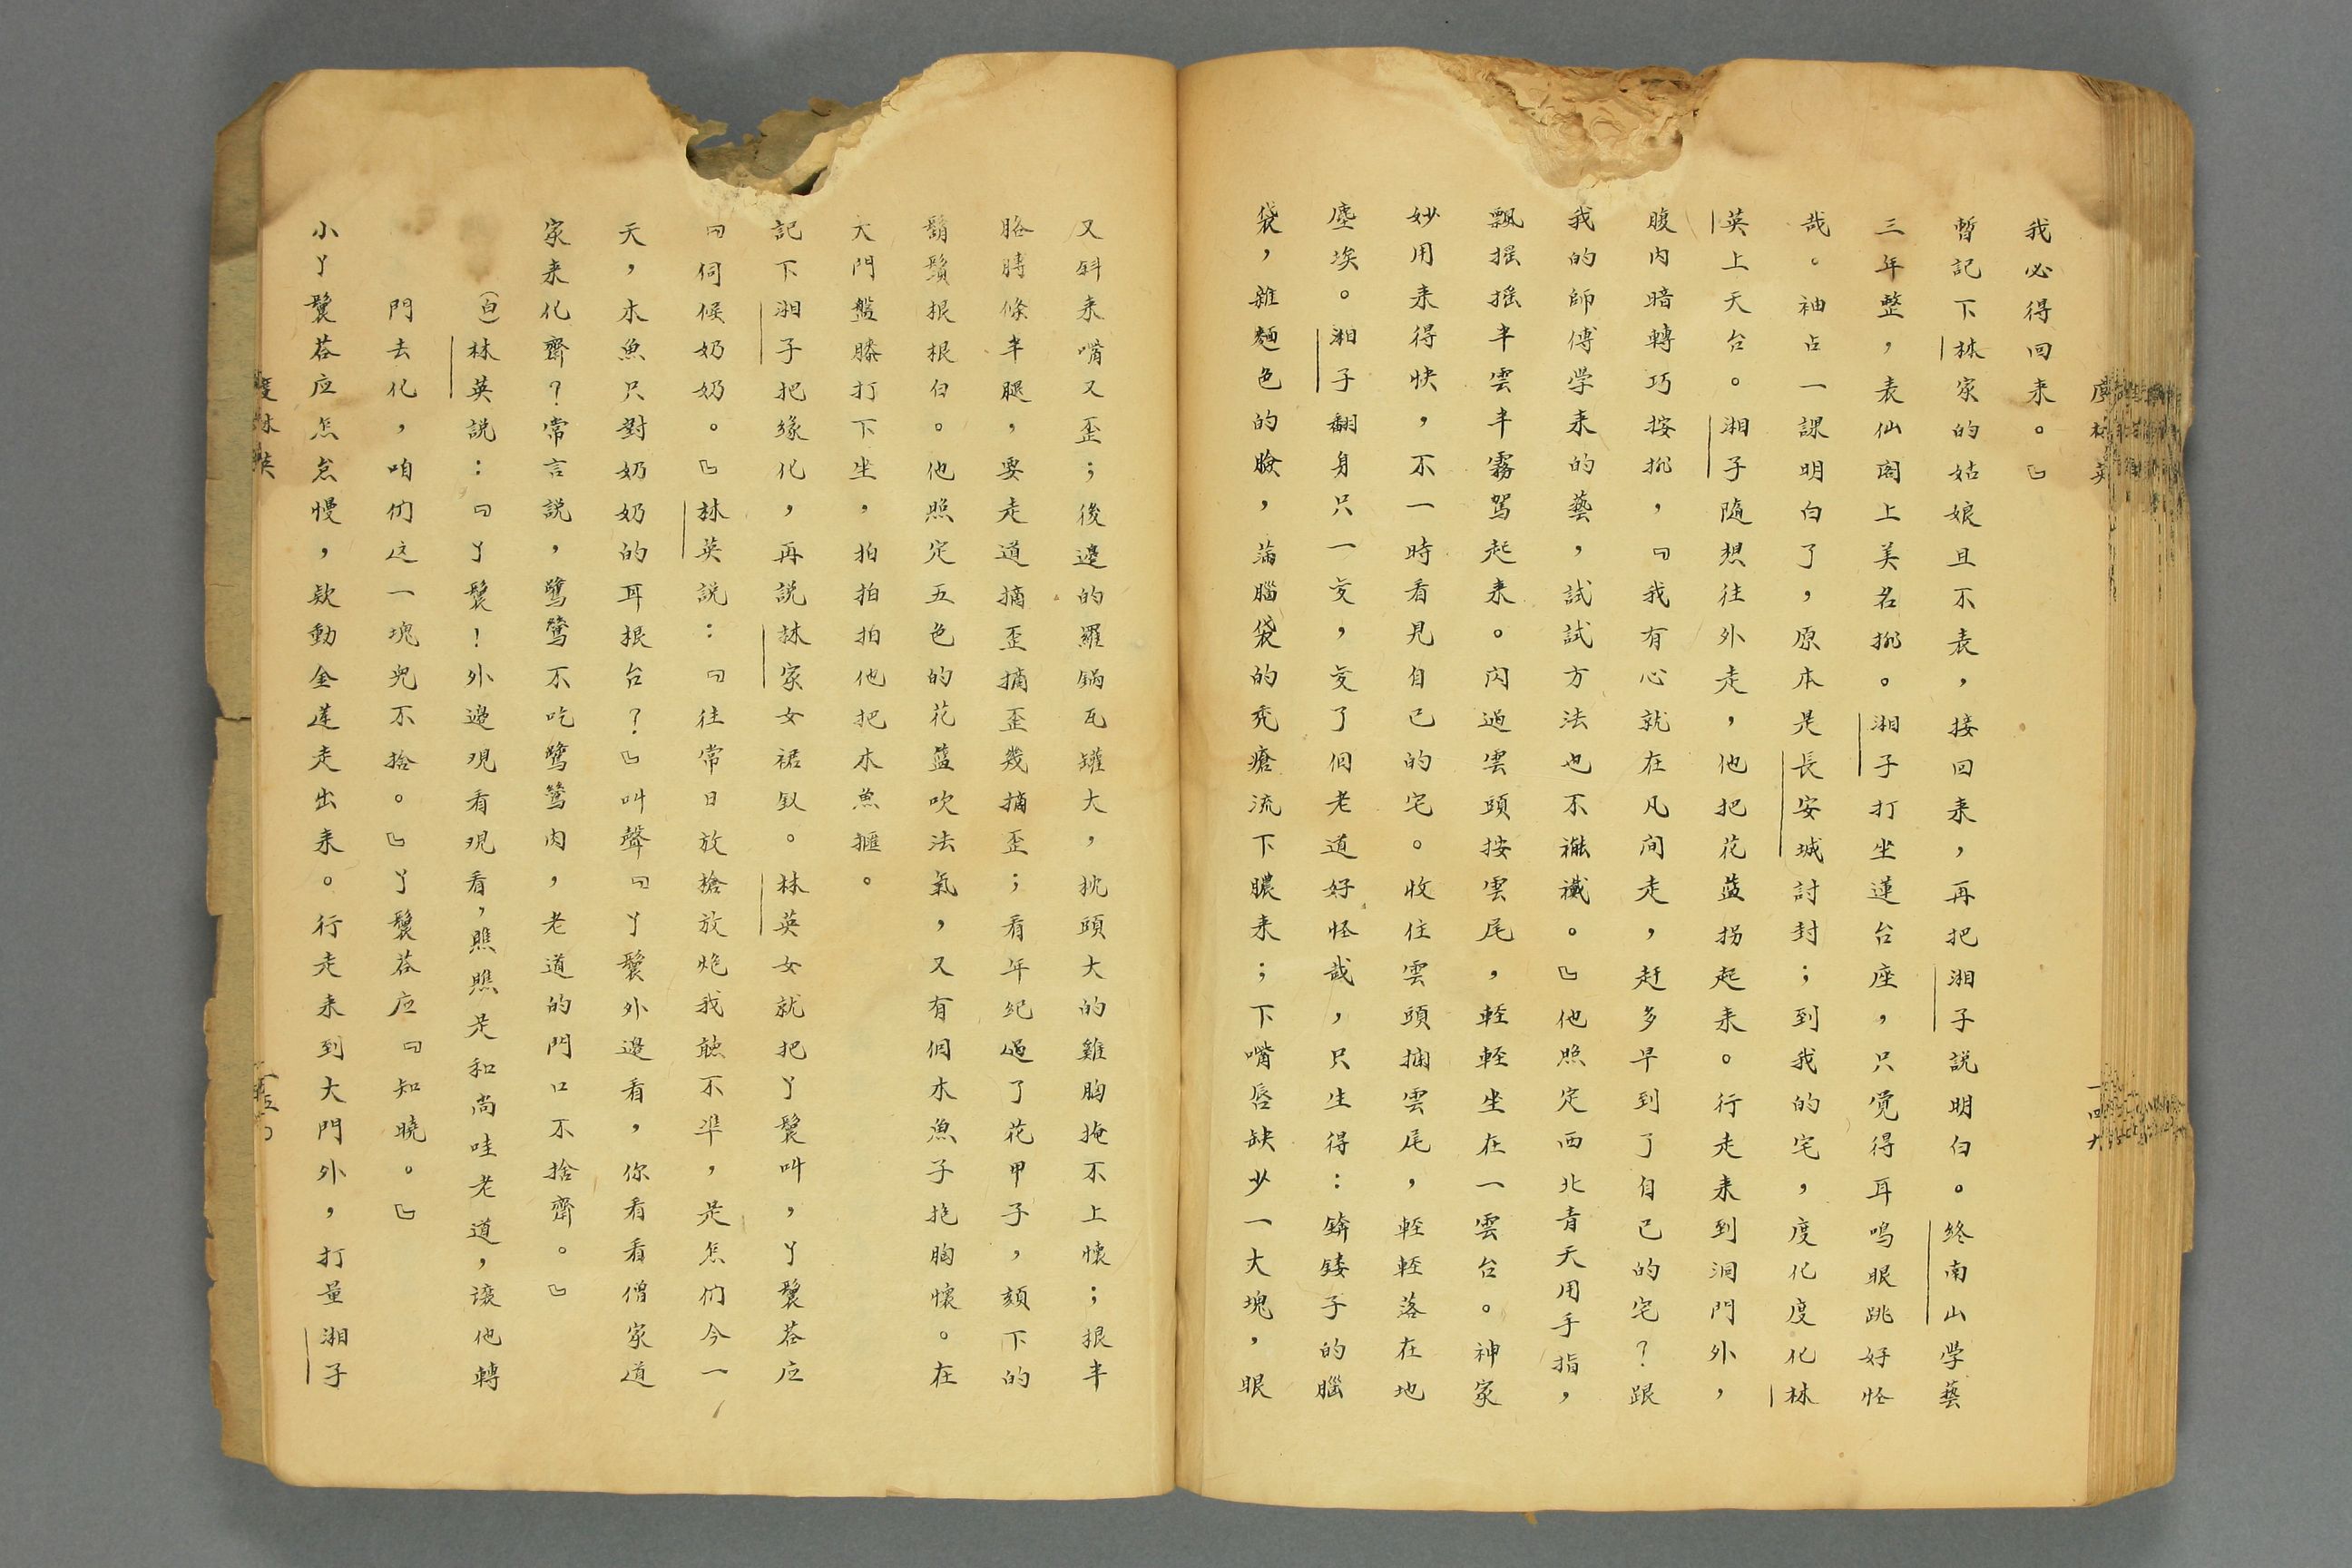 我必得回来。』
暫記下林家的姑娘且不表，接回来，再把湘子説明白。終南山学藝
三年整，表仙阁上美名挑。湘子打坐蓮台座，只觉得耳鸣眼跳好怪
哉。袖占一課明白了，原本是長安城討封；到我的宅，度化度化林
英上天台。湘子隨想往外走，他把花蓝拐起来。行走来到洞門外，
腹内暗轉巧按挑，『我有心就在凡间走，赶多早到了自己的宅？跟
我的師傅学来的藝，試試方法也不襰襶。』他照定西北青天用手指，
飘摇摇半雲半霧駕起来。闪过雲頭按雲尾，輕輕坐在一雲台。神家
妙用来得快，不一時看見自己的宅。收住雲頭捆雲尾，輕輕落在地
塵埃。湘子翻身只一变，变了個老道好怪哉，只生得：錛鏤子的腦
袋，雜麵色的臉，滿腦袋的秃瘡流下膿来；下嘴唇缺少一大塊，眼
又斜来嘴又歪；後邊的羅鍋瓦罐大，枕頭大的雞胸掩不上懷；根半
胳膊條半腿，要走道摘歪摘歪幾摘歪；看年纪過了花甲子，頦下的
鬍鬚根根白。他照定五色的花蓝吹法氣，又有個木魚子抱胸懷。在
大門盤膝打下坐，拍拍拍拍他把木魚摧。
記下湘子把緣化，再説林家女裙釵。林英女就把丫鬟叫，丫鬟荅应
『伺候奶奶。』林英説：『往常日放搶放炮我聽不準，是怎们今一
天，木魚只對奶奶的耳根台？』叫聲『丫鬟外邊看，你看看僧家道
家来化齋？常言説，鷺鷥不吃鷺鷥肉，老道的門口不捨齋。』
（白）林英説：『丫鬟！外邊观看观看，瞧瞧是和尚哇老道，讓他轉
門去化，咱们这一塊兒不捨。』丫鬟荅应『知曉。』
小丫鬟荅应怎怠慢，欵動金蓮走出来。行走来到大門外，打量湘子